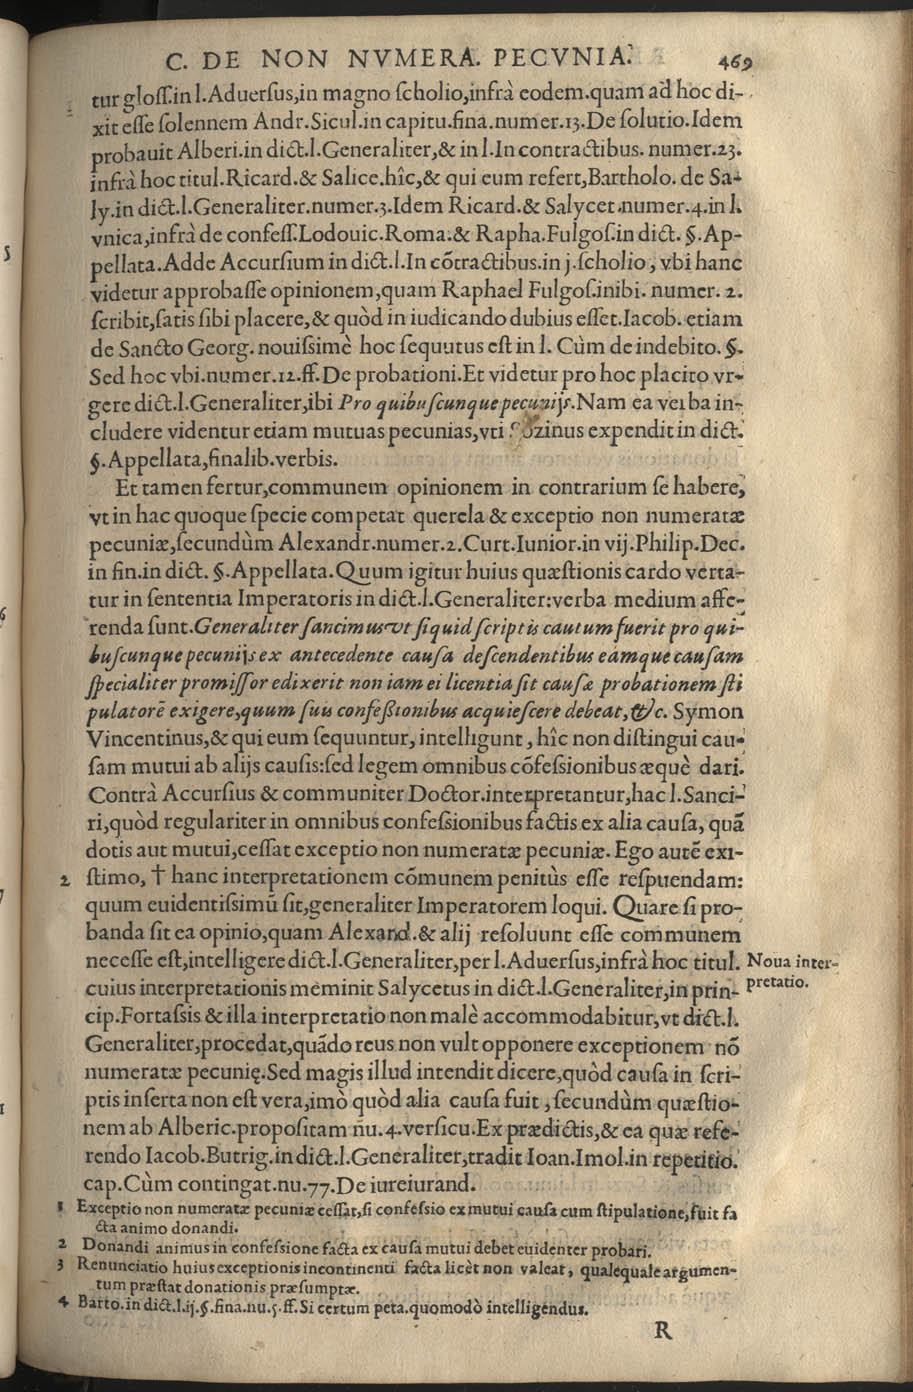 C. DE NON NVMERA. PECVNIA. 469
tur gloſſ.in l.Aduerſus,in magno ſcholio,infrà eodem.quam ad hoc di-
xit eſſe ſolennem Andr.Sicul.in capitu.fina.numer.13.De ſolutio.Idem
probauit Alberi.in dict.l.Generaliter,& in l.In contractibus. numer.23.
infrà hoc titul.Ricard.& Salice.hîc,& qui eum refert,Bartholo. de Sa-
ly.in dict.l.Generaliter.numer.3.Idem Ricard.& Salycet.numer.4.in l.
vnica,infrà de confeſſ.Lodouic.Roma.& Rapha.Fulgoſ.in dict. §.Ap-
pellata.Adde Accurſium in dict.l.In cõtractibus.in j.ſcholio, vbi hanc
videtur approbaſſe opinionem,quam Raphael Fulgoſ.inibi. numer. 2.
ſcribit,ſatis ſibi placere,& quòd in iudicando dubius eſſet.Iacob. etiam
de Sancto Georg. nouiſsimè hoc ſequutus eſt in l. Cùm de indebito. §.
Sed hoc vbi.numer.12.ff.De probationi.Et videtur pro hoc placito vr-
gere dict.l.Generaliter,ibi Pro quibuſcunque pecunijs.Nam ea verba in-
cludere videntur etiam mutuas pecunias,vti Sozinus expendit in dict.
§.Appellata,finalib.verbis.
Et tamen fertur,communem opinionem in contrarium ſe habere,
vt in hac quoque ſpecie competat querela & exceptio non numeratæ
pecuniæ,ſecundùm Alexandr.numer.2.Curt.Iunior.in vij.Philip.Dec.
in fin.in dict. §.Appellata.Quum igitur huius quæſtionis cardo verta-
tur in ſententia Imperatoris in dict.l.Generaliter:verba medium affe-
renda ſunt.Generaliter ſancimus vt ſi quid ſcriptis cautum fuerit pro qui-
buſcunque pecunijs ex antecedente cauſa deſcendentibus eamque cauſam
ſpecialiter promiſſor edixerit non iam ei licentia ſit cauſæ probationem ſti
pulatorẽ exigere,quum ſuis confeſsionibus acquieſcere debeat,&c. Symon
Vincentinus,& qui eum ſequuntur, intelligunt, hîc non diſtingui cau-
ſam mutui ab alijs cauſis:ſed legem omnibus cõfeſsionibus æquè dari.
Contrà Accurſius & communiter Doctor.interpretantur,hac l.Sanci-
ri,quòd regulariter in omnibus confeſsionibus factis ex alia cauſa, quã
dotis aut mutui,ceſſat exceptio non numeratæ pecuniæ. Ego autẽ exi-
2 ſtimo, † hanc interpretationem cõmunem penitùs eſſe reſpuendam:
quum euidentiſsimũ ſit,generaliter Imperatorem loqui. Quare ſi pro-
banda ſit ea opinio,quam Alexand.& alij reſoluunt eſſe communem
neceſſe eſt,intelligere dict.l.Generaliter,per l.Aduerſus,infrà hoc titul. Noua inter-
cuius interpretationis meminit Salycetus in dict.l.Generaliter,in prin- pretatio.
cip.Fortaſsis & illa interpretatio non malè accommodabitur,vt dict.l.
Generaliter,procedat,quãdo reus non vult opponere exceptionem nõ
numeratæ pecunię.Sed magis illud intendit dicere,quòd cauſa in ſcri-
ptis inſerta non eſt vera,imò quòd alia cauſa fuit, ſecundùm quæſtio-
nem ab Alberic.propoſitam nũ.4.verſicu.Ex prædictis,& ea quæ refe-
rendo Iacob.Butrig.in dict.l.Generaliter,tradit Ioan.Imol.in repetitio.
cap.Cùm contingat.nu.77.De iureiurand.
1 Exceptio non numeratæ pecuniæ ceſſat,ſi confeſsio ex mutui cauſa cum ſtipulatione,fuit fa
cta animo donandi.
2 Donandi animus in confeſsione facta ex cauſa mutui debet euidenter probari.
3 Renunciatio huius exceptionis incontinenti facta licèt non valeat, qualequale argumen-
tum præſtat donationis præſumptæ.
4 Barto.in dict.l.ij.§.fina.nu.5.ff.Si certum peta.quomodò intelligendus.
R